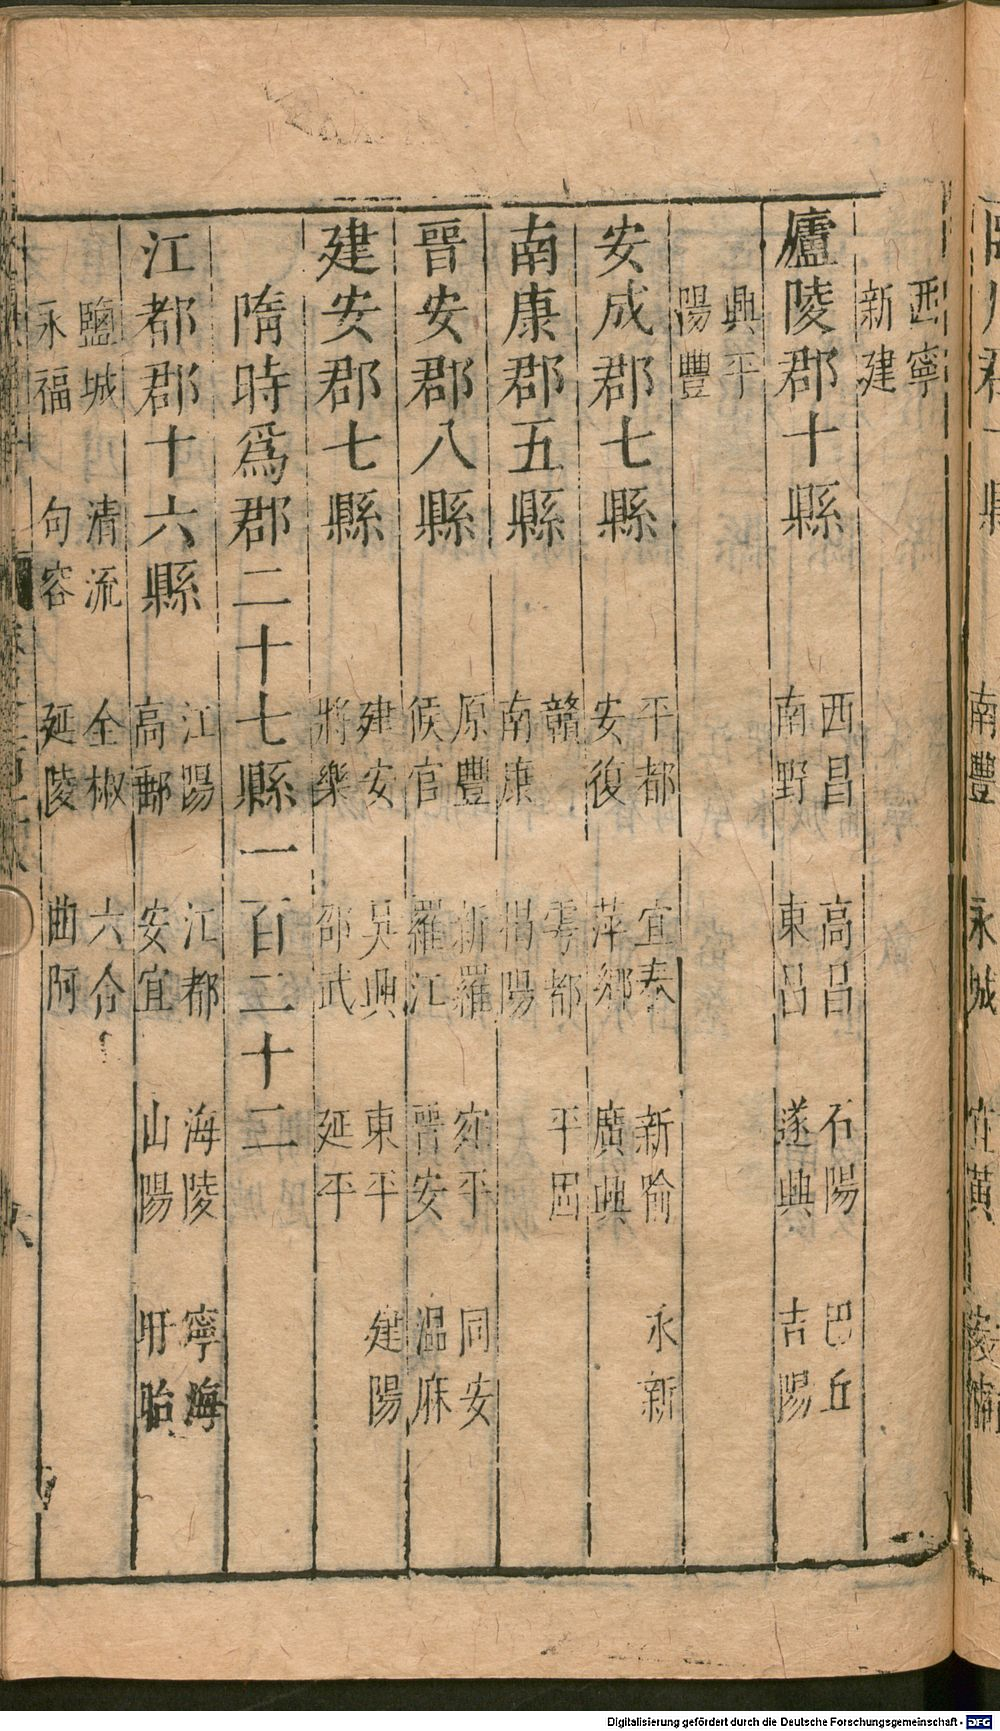 西寧
新建
廬陵郡十縣
西昌 高昌 石陽 巴丘
南野 東昌 遂興 吉陽
興平
陽豐
安成郡七縣
平都 宜春 新喻 永新
安復 萍鄉 廣興
南康郡五縣
贛 雩都 平固
南康 揭陽
晉安郡八縣
原豐 新羅 宛平 同安
候官 羅江 晉安 温麻
建安郡七縣
建安 吳興 東平 建陽
將樂 邵武 延平
隋時爲郡二十七縣一百二十二
江都郡十六縣
江陽 江都 海陵 寧海
高郵 安宜 山陽 盱眙
鹽城 清流 全椒 六合
永福 句容 延陵 曲阿
南豐 永城 宜黄
Digitalisierung gefördert durch die Deutsche Forschungsgemeinschaft - DFG